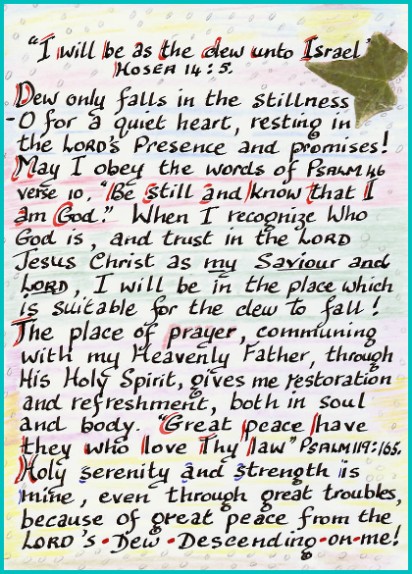 "I will be as the dew unto Israel"
HOSEA 14:5.
Dew only falls in the stillness
-O for a quiet heart, resting in
the LORD'S Presence and promises!
May I obey the words of PSALM 46
verse 10, "Be still and know that I
am God." When I recognize Who
God is, and trust in the LORD
Jesus Christ as my Saviour and
LORD, I will be in the place which
is suitable for the dew to fall!
The place of prayer, communing
with my Heavenly Father, through
His Holy Spirit, gives me restoration
and refreshment, both in soul
and body. "Great peace have
they who love Thy law" PSALM 119:165.
Holy serenity and strength is
mine, even through great troubles,
because of great peace from the
LORD'S Dew Descending-on-me!